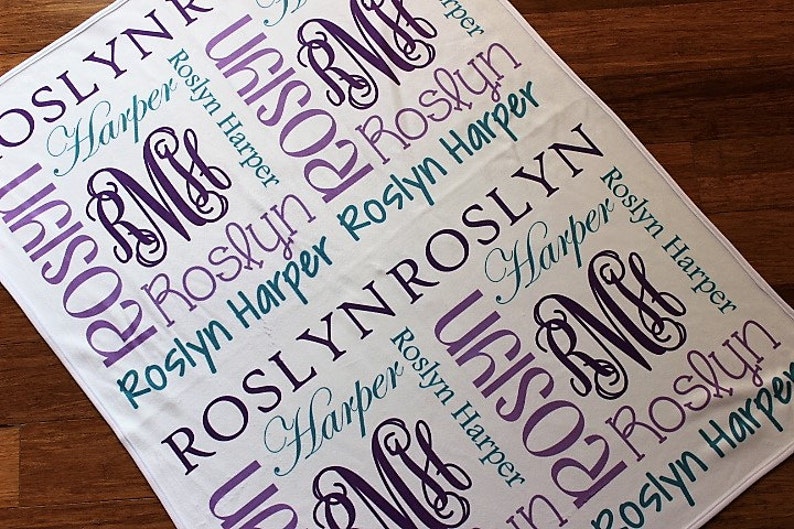 ROSLYN
Harper
Roslyn Harper
Roslyn
RMH
Roslyn
Roslyn Harper
R
Harper
Harper
Roslyn
RMH
Roslyn
Roslyn Harper
ROSLYN
Harper
Roslyn Harper
RMH
Roslyn
ROSLYN
Harper
Roslyn Harper
Roslyn
RMH
Roslyn
Roslyn Harper